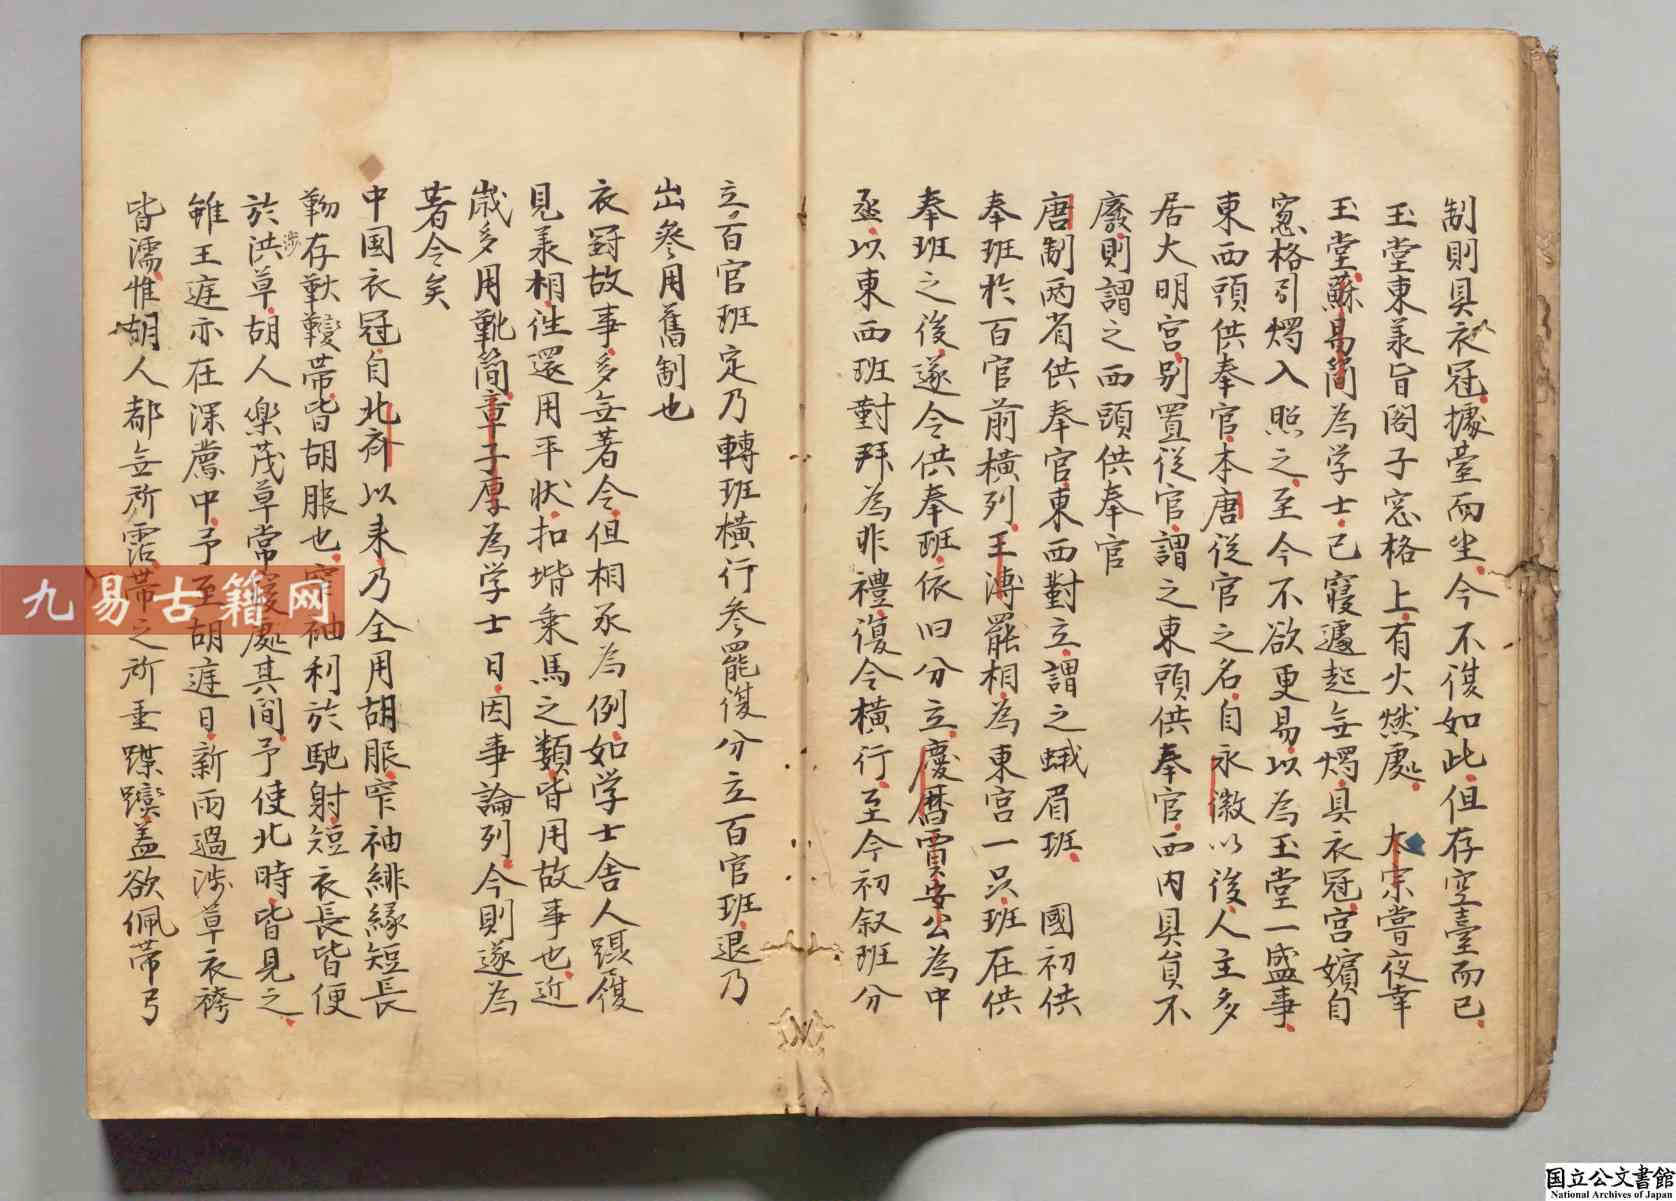 制則具衣冠據臺而坐今不復如此但存空臺而已
玉堂東承旨閣子窓格上有火燃處　太宗嘗夜幸
玉堂蘇易簡為学士已寢遽起無燭具衣冠宮嬪自
窓格引燭入照之至今不欲更易以為玉堂一盛事
東西頭供奉官本唐従官之名自永徽以後人主多
居大明宮別置従官謂之東頭供奉官西内具員不
廢則謂之西頭供奉官
唐制两省供奉官東西對立謂之蛾眉班　國初供
奉班於百官前横列王溥罷相為東宮一品班在供
奉班之後遂令供奉班依旧分立慶暦賈安公為中
丞以東西班對拜為非禮復令横行至今初叙班分
立百官班定乃轉班横行参罷復分立百官班退乃
出參用舊制也
衣冠故事多無著令但相承為例如学士舎人躡履
見丞相徃還用平状扣堦乗馬之類皆用故事也近
歳多用靴簡章子厚為学士日因事論列今則遂為
著令矣
中国衣冠自北斉以来乃全用胡服窄袖緋緑短長
靿存䩞鞢帯皆胡服也窄袖利於馳射短衣長皆便
於洪草胡人樂茂草常寢處其間予使北時皆見之
涉
雖王庭亦在深薦中予至胡庭日新雨過涉草衣袴
皆濡惟胡人都無所霑帯之所垂蹀躞盖欲佩帯弓
九易古籍网
国立公文書館
National Archives of Japan